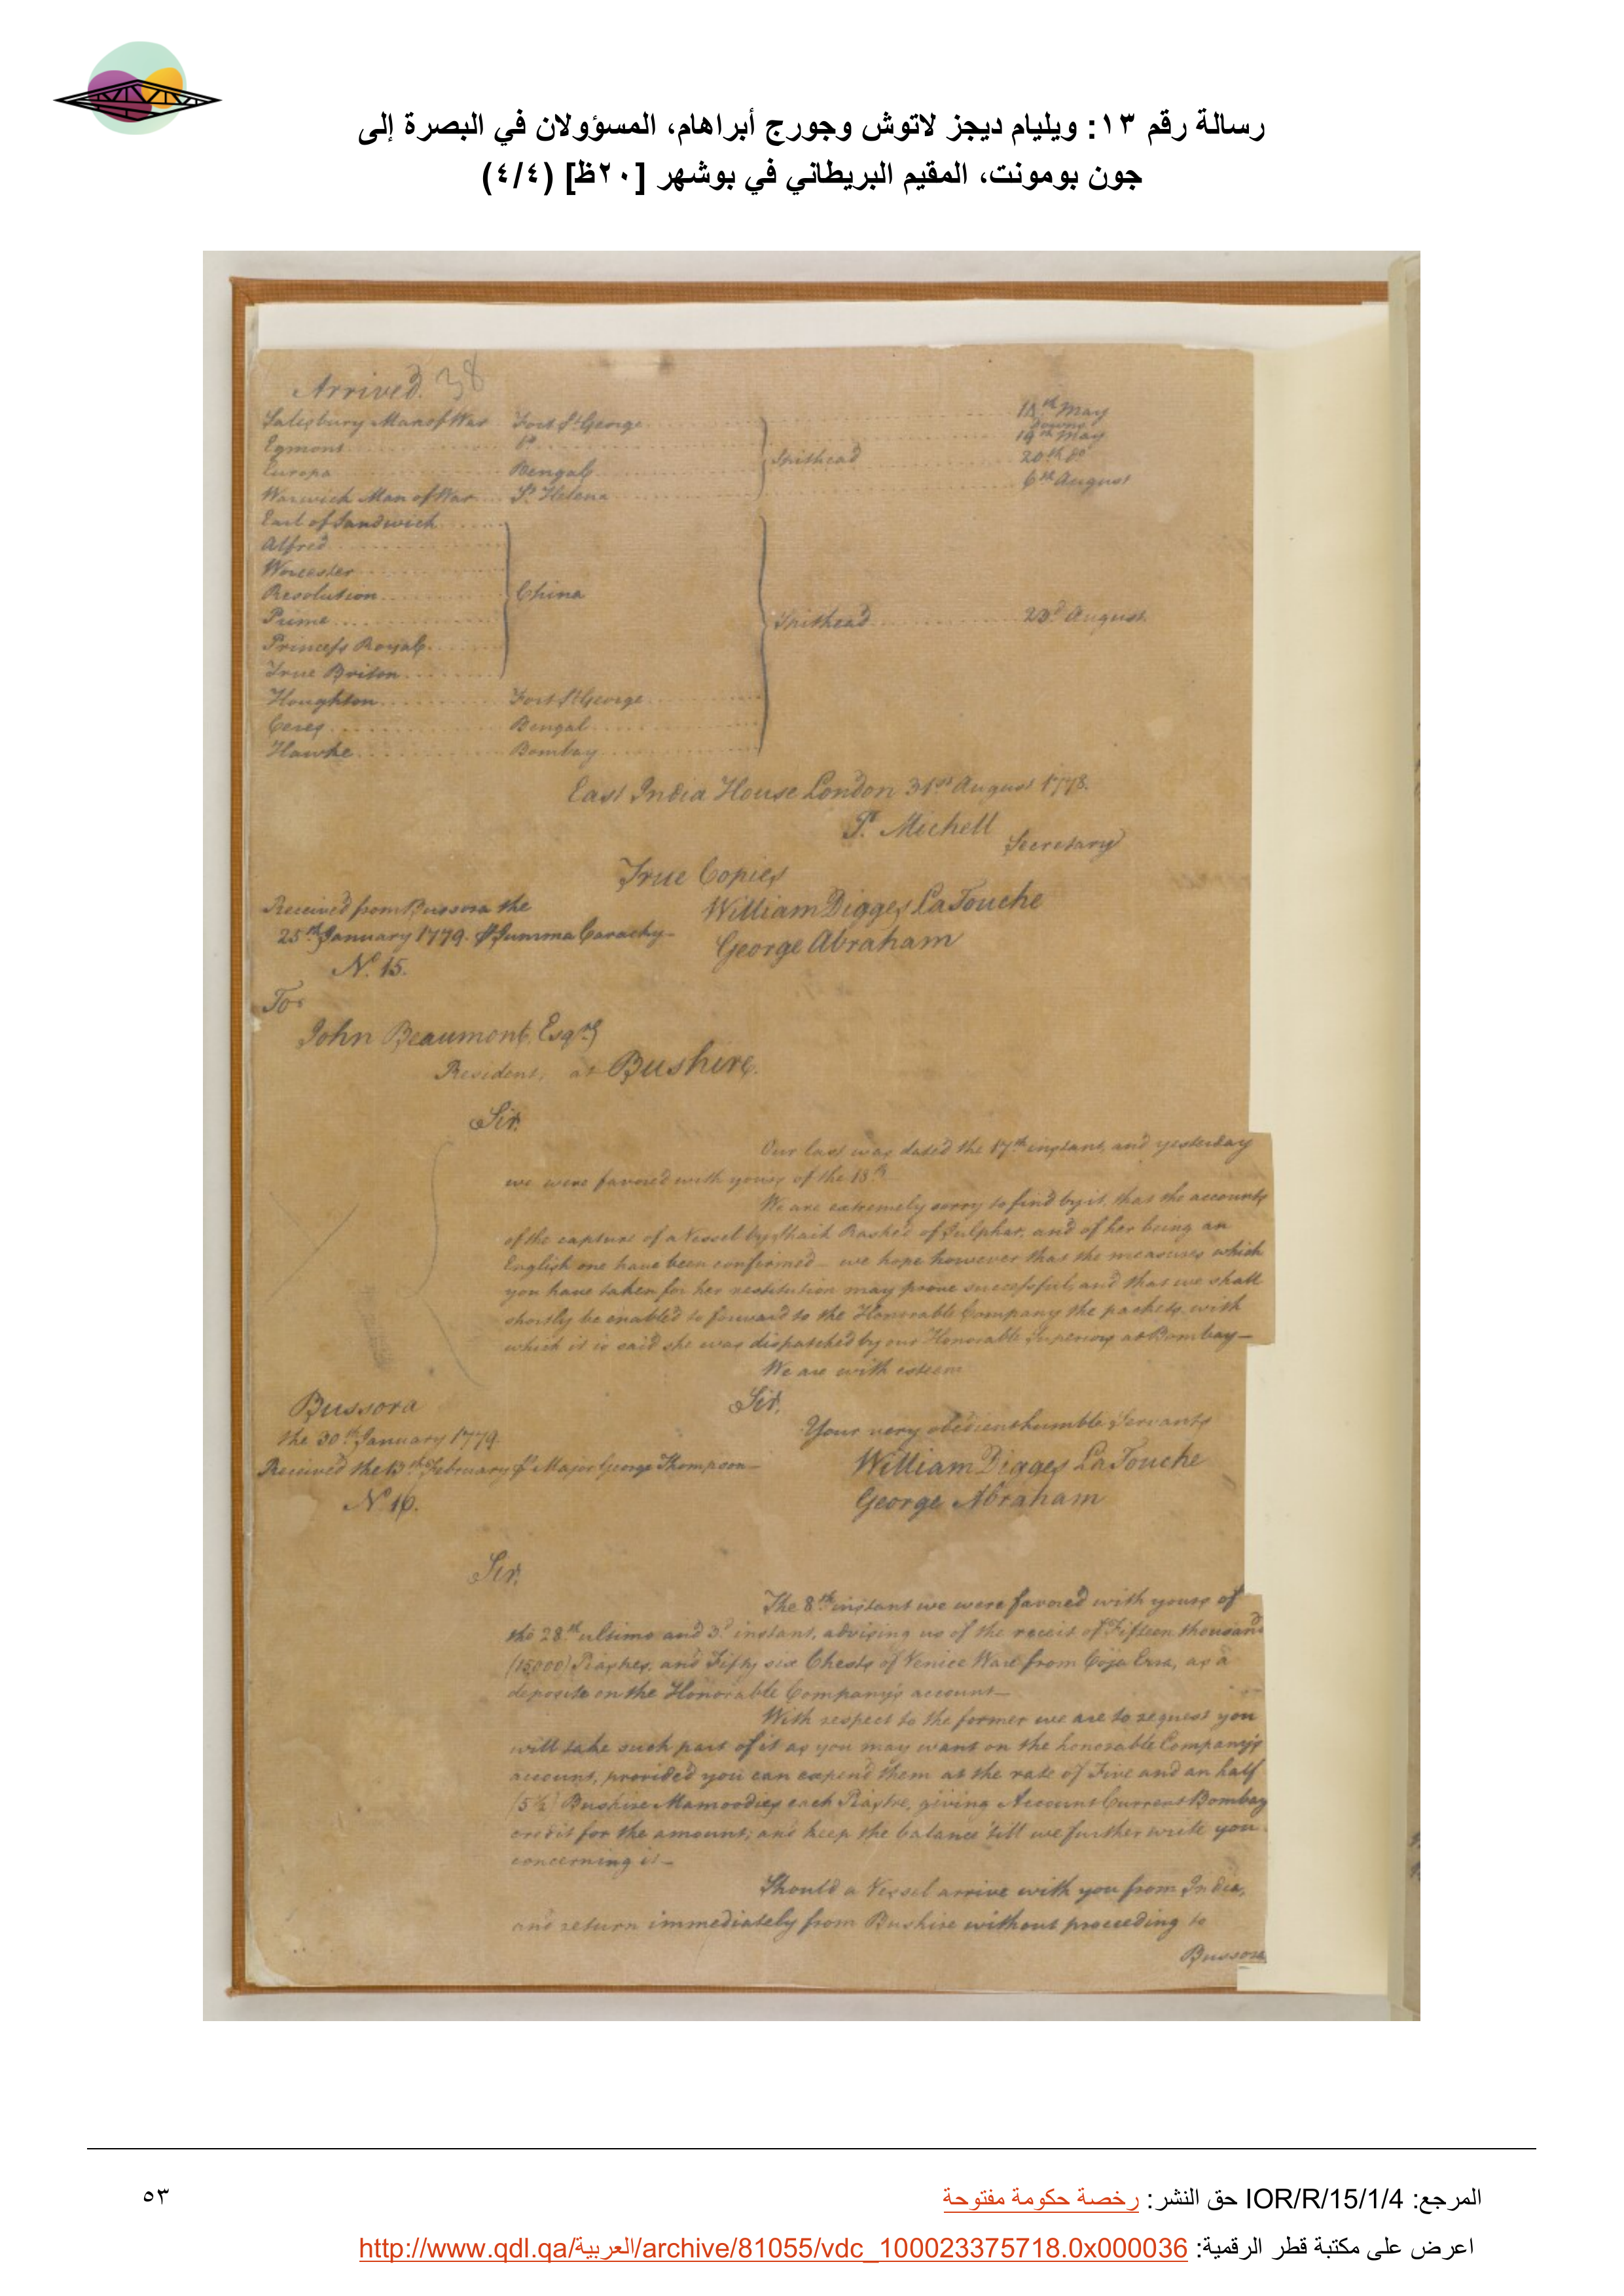 رسالة رقم ١٣: ويليام ديجز لاتوش وجورج أبراهام، المسؤولان في البصرة إلى
جون بومونت، المقيم البريطاني في بوشهر [٢٠ظ] (٤/٤)
Arrived. 38
Salisbury Man of War Fort St. George 18th May
Downs
Egmont Do 19th May
Europa Bengal Spithead 20th do
Warwick Man of War St. Helena 6th August
Earl of Sandwich
Alfred
Worcester
Resolution China
Prime Spithead 23d August
Princess Royal
True Briton
Houghton Fort St. George
Ceres Bengal
Hawke Bombay
East India House London 31st August 1778.
P. Michell
Secretary
True Copies
Received from Bussora the William Digges LaTouche
25th January 1779. Pr Jumma Carachy- George Abraham
No. 15.
To
John Beaumont, Esqre
Resident, at Bushire.
Sir.
Our last was dated the 17th instant, and yesterday
we were favored with yours of the 18th
We are extremely sorry to find by it, that the accounts
of the capture of a Vessel by Shaik Rashed of Julphar, and of her being an
English one have been confirmed - we hope however that the measures which
you have taken for her restitution may prove successful, and that we shall
shortly be enabled to forward to the Honorable Company the packets with
which it is said she was dispatched by our Honorable Superiors at Bombay-
We are with esteem
Bussora Sir,
the 30th January 1779. Your very obedient humble Servants
Received the 13th February Pr Major George Thompson- William Digges LaTouche
No. 16. George Abraham
Sir,
The 8th instant we were favored with yours of
the 28th ultimo and 3d instant, advising us of the receit of Fifteen thousand
(15000) Piastres, and Fifty six Chests of Venice Ware from Coja Essa, as a
deposite on the Honorable Company's account-
With respect to the former we are to request you
will take such part of it as you may want on the honorable Company's
account, provided you can expend them at the rate of Five and an half
(5½) Bushire Mamoodies each Piastre, giving Account Current Bombay
credit for the amount; and keep the balance 'till we further write you
concerning it-
Should a Vessel arrive with you from India,
and return immediately from Bushire without proceeding to
Bussora
المرجع: IOR/R/15/1/4 حق النشر: رخصة حكومة مفتوحة
٥٣
اعرض على مكتبة قطر الرقمية: http://www.qdl.qa/العربية/archive/81055/vdc_100023375718.0x000036